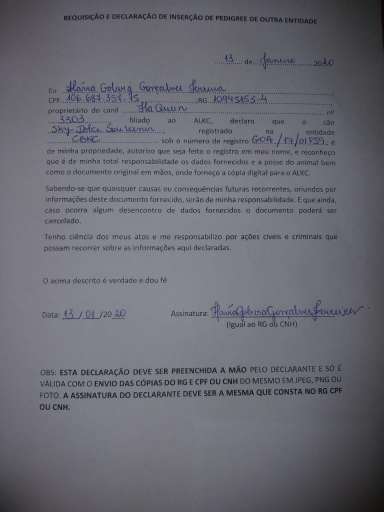 REQUISIÇÃO E DECLARAÇÃO DE INSERÇÃO DE PEDIGREE DE OUTRA ENTIDADE
13 de Janeiro 2020
Eu Flávia Gonçalves Ferreira
CPF 106.687.357.75 RG 10945153-4
proprietário do canil Fla Quen nº
3303 filiado ao ALKC, declaro que o cão
Sky Dolce registrado na entidade
CBKC sob o número de registro GOA/17/01859, é
de minha propriedade, autorizo que seja feito o registro em meu nome, e reconheço
que é de minha total responsabilidade os dados fornecidos e a posse do animal bem
como o documento original em mãos, onde forneço a cópia digital para o ALKC.
Sabendo-se que quaisquer causas ou consequências futuras recorrentes, oriundos por
informações deste documento fornecido, serão de minha responsabilidade. E que ainda,
caso ocorra algum desencontro de dados fornecidos o documento poderá ser
cancelado.
Tenho ciência dos meus atos e me responsabilizo por ações cíveis e criminais que
possam recorrer as informações aqui declaradas.
O acima descrito é verdade e dou fé
Data: 13/01/2020 Assinatura: Flávia Gonçalves Ferreira
(Igual ao RG ou CNH)
OBS: ESTA DECLARAÇÃO DEVE SER PREENCHIDA A MÃO PELO DECLARANTE E SÓ É
VÁLIDA COM O ENVIO DAS CÓPIAS DO RG E CPF OU CNH DO MESMO EM JPEG, PNG OU
FOTO. A ASSINATURA DO DECLARANTE DEVE SER A MESMA QUE CONSTA NO RG CPF
OU CNH.